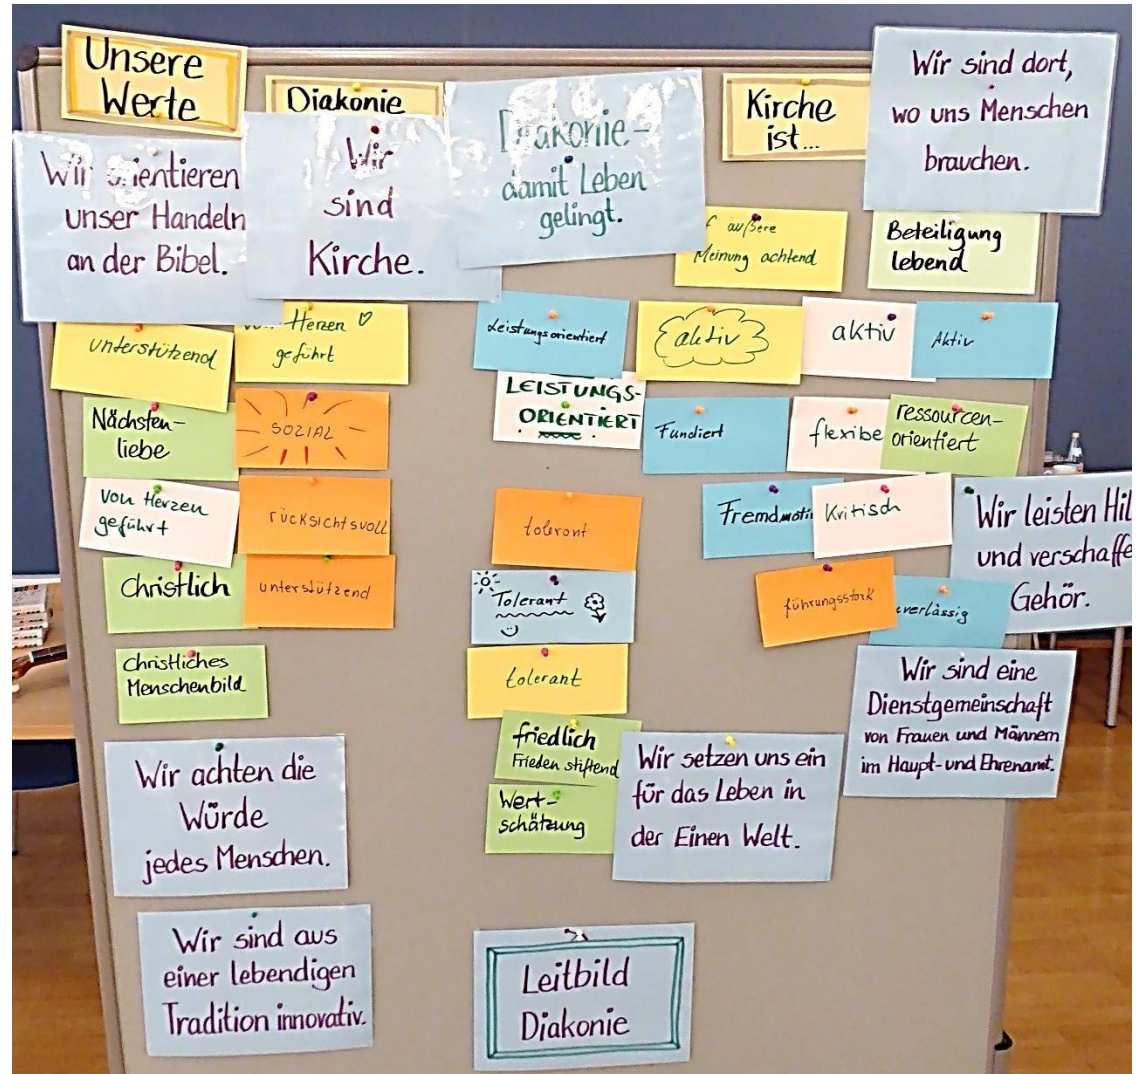 Unsere
Werte
Diakonie
Kirche
ist...
Wir sind dort,
wo uns Menschen
brauchen.
Wir orientieren
unser Handeln
an der Bibel.
Wir
sind
Kirche.
Diakonie-
damit Leben
gelingt.
äußere
Meinung achtend
Beteiligung
lebend
unterstützend
von Herzen ♡
geführt
Leistungsorientiert
aktiv
aktiv
Aktiv
Nächsten-
liebe
SOZIAL
LEISTUNGS-
ORIENTIERT
Fundiert
flexibe
ressourcen-
orientiert
Von Herzen
geführt
rücksichtsvoll
tolerant
Fremdmotiv
Kritisch
Wir leisten Hil
und verschaffe
Gehör.
Christlich
unterstützend
Tolerant
führungsstark
verlässig
Christliches
Menschenbild
tolerant
Wir sind eine
Dienstgemeinschaft
von Frauen und Männern
im Haupt- und Ehrenamt.
friedlich
Frieden stiftend
Wert-
schätzung
Wir setzen uns ein
für das Leben in
der Einen Welt.
Wir achten die
Würde
jedes Menschen.
Wir sind aus
einer lebendigen
Tradition innovativ.
Leitbild
Diakonie